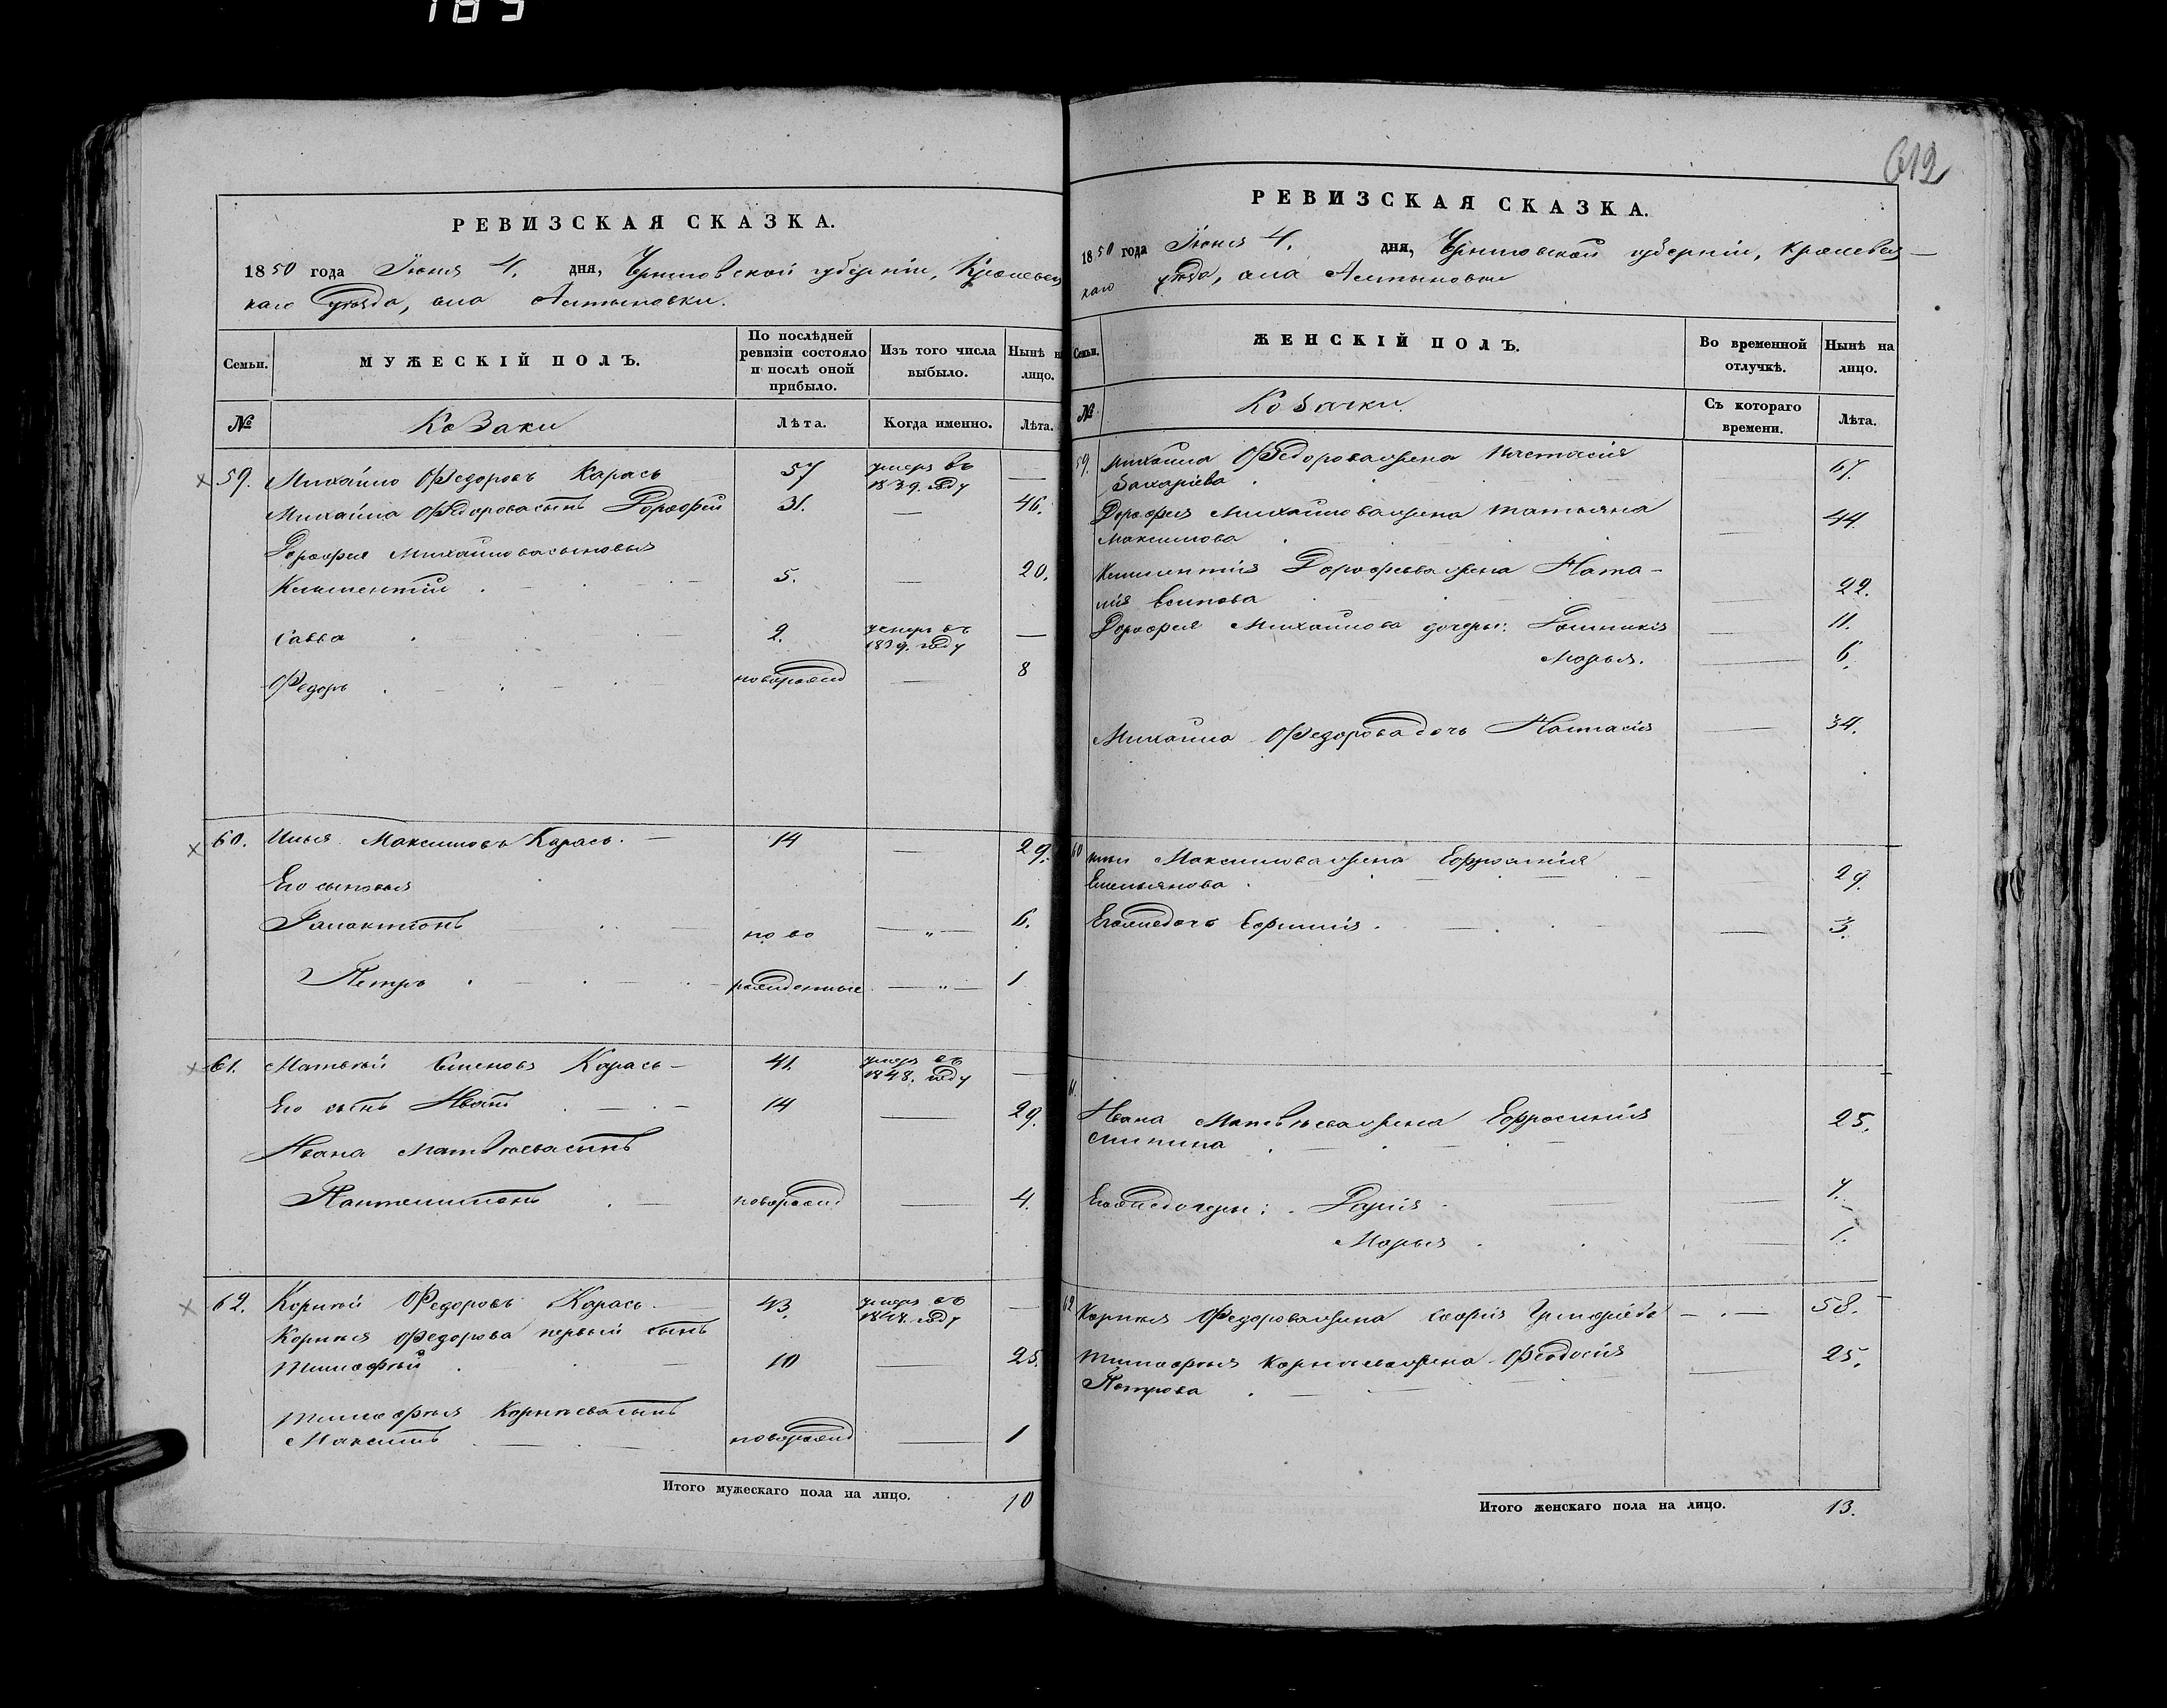 185
РЕВИЗСКАЯ СКАЗКА.
1850 года Іюня 4. дня, Черниговской губерніи, Кролевец
каго уѣзда, села Алтыновки.
Семьи.
МУЖЕСКІЙ ПОЛЪ.
По послѣдней ревизіи состояло и послѣ оной прибыло.
Изъ того числа выбыло.
Нынѣ на лицо.
№
Козаки
Лѣта.
Когда именно.
Лѣта.
59. Михайло Федоровъ Карась 57 умеръ въ 1839. году —
Михайла Федорова сынъ Дорофей 31. — 46.
Дорофея Михайлова сыновья
Климентій 5. — 20.
Савва 2. умеръ въ 1839. году —
Федоръ новорожд — 8
60. Илья Максимовъ Карась. — 14 — 29.
Его сыновья
Галактіонъ ново — „ — 6.
Петръ рожденные — „ — 1
61. Матвѣй Семеновъ Карась — 41. умеръ въ 1848. году —
Его сынъ Иванъ 14 — 29.
Ивана Матвѣева сынъ
Пантелимонъ новорожд — 4.
62. Корнѣй Федоровъ Карась. 43. умеръ въ 1848. году —
Корнѣя Федорова первый сынъ
Тимофѣй 10 — 25.
Тимофѣя Корнѣева сынъ
Максимъ новорожд — 1
Итого мужескаго пола на лицо. 10
612
РЕВИЗСКАЯ СКАЗКА.
1850 года Іюня 4. дня, Черниговской губерніи, Кролевец—
каго уѣзда, села Алтыновки
Семьи.
ЖЕНСКІЙ ПОЛЪ.
Во временной отлучкѣ.
Нынѣ на лицо.
№
Козачки.
Съ котораго времени.
Лѣта.
59. Михайла Федорова жена Настасія
Захаріева — 67.
Дорофея Михайлова жена Татьяна — 44
Максимова
Климентія Дорофеева жена Ната-
лія Осипова — 22.
Дорофея Михайлова дочери: Гликкія — 11.
Марья. — 6.
Михайла Федорова дочь Настасія — 34.
60 Ильи Максимова жена Ефросинія
Емельянова — 29.
Его же дочь Ефимія. — 3.
61.
Ивана Матвѣева жена Ефросинія — 25.
Его же дочери: Дарія — 7.
Марья — 1.
62 Корнѣя Федорова жена Софія Григоріева — 58.
Тимофѣя Корнѣева жена Феодосія — 25.
Петрова
Итого женскаго пола на лицо. 13.